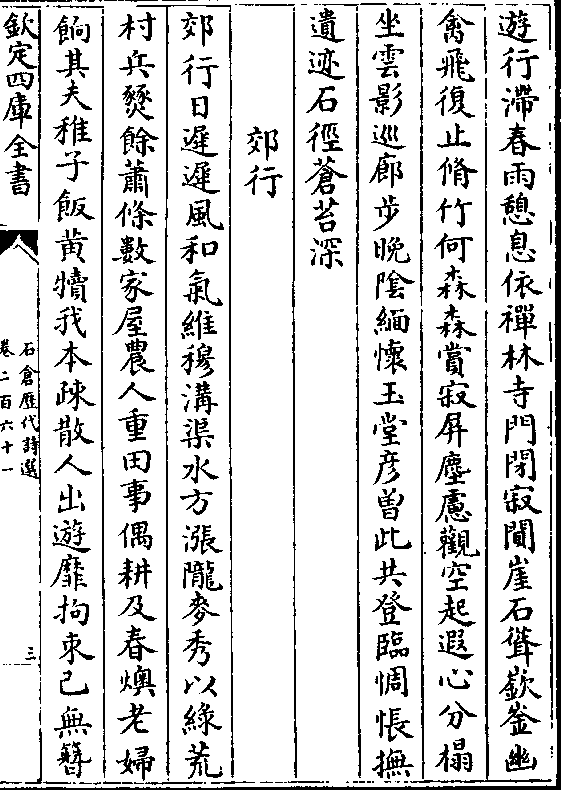 遊行滯春雨憩息依禪林寺門閉寂閴崖石聳嶔崟幽
禽飛復止脩竹何森森賞寂屏塵慮觀空起遐心分榻
坐雲影巡廊步晚陰緬懷玉堂彦曽此共登臨惆悵撫
遺迹石徑蒼苔深
郊行
郊行日遲遲風和氣維穆溝渠水方漲隴麥秀以緑荒
村兵燹餘蕭條數家屋農人重田事偶耕及春燠老婦
餉其夫稚子飯黄犢我本疎散人出遊靡拘束已無簪
欽定四庫全書
石倉歴代詩選
卷二百六十一
三